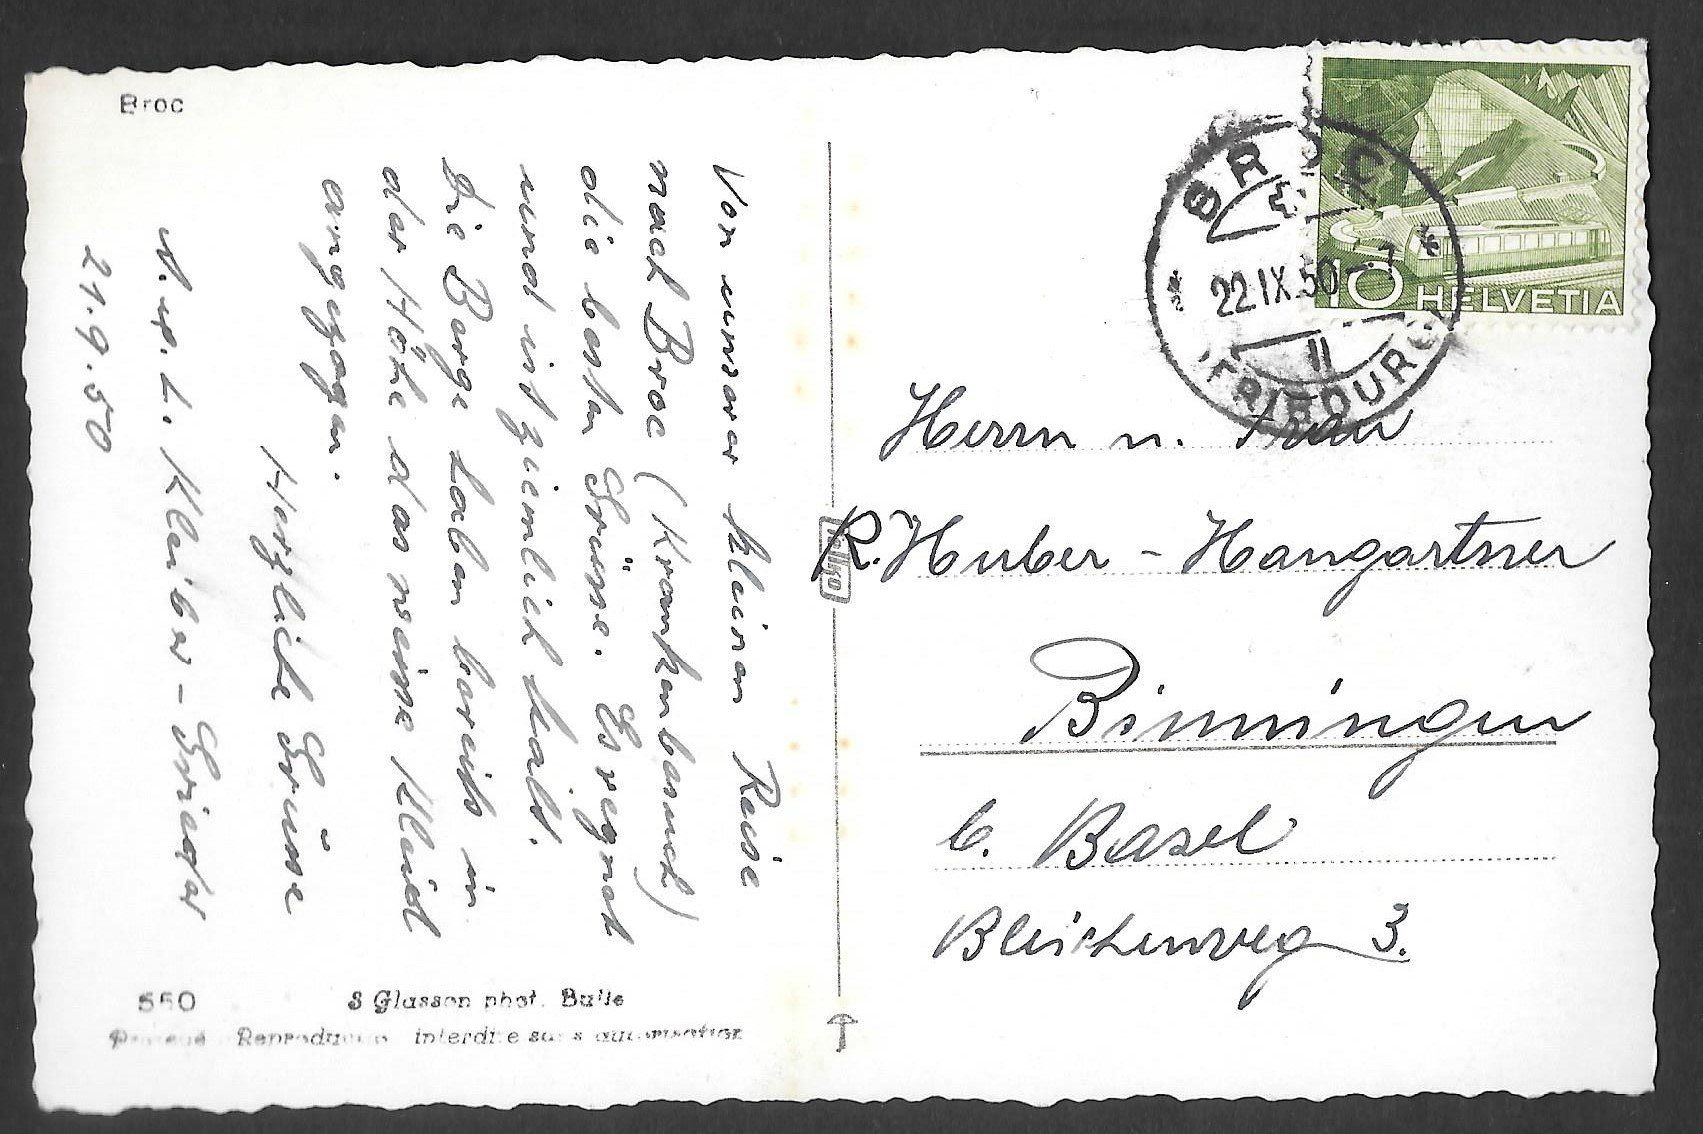 Broc
Von unserer kleinen Reise
nach Broc (Krankenbesuch)
die besten Grüsse. Es regnet
und ist ziemlich kalt.
Die Berge haben bereits in
der Höhe das weisse Kleid
angezogen.
Herzliche Grüsse
L. Kleiber-Grieder
21.9.50
550
S Glasson phot. Bulle
Reproduction interdite sans autorisation
BROC
22.IX.50
FRIBOURG
10 HELVETIA
Herrn u. Frau
R. Huber-Hangartner
Binningen
b. Basel
Bleichenweg 3.